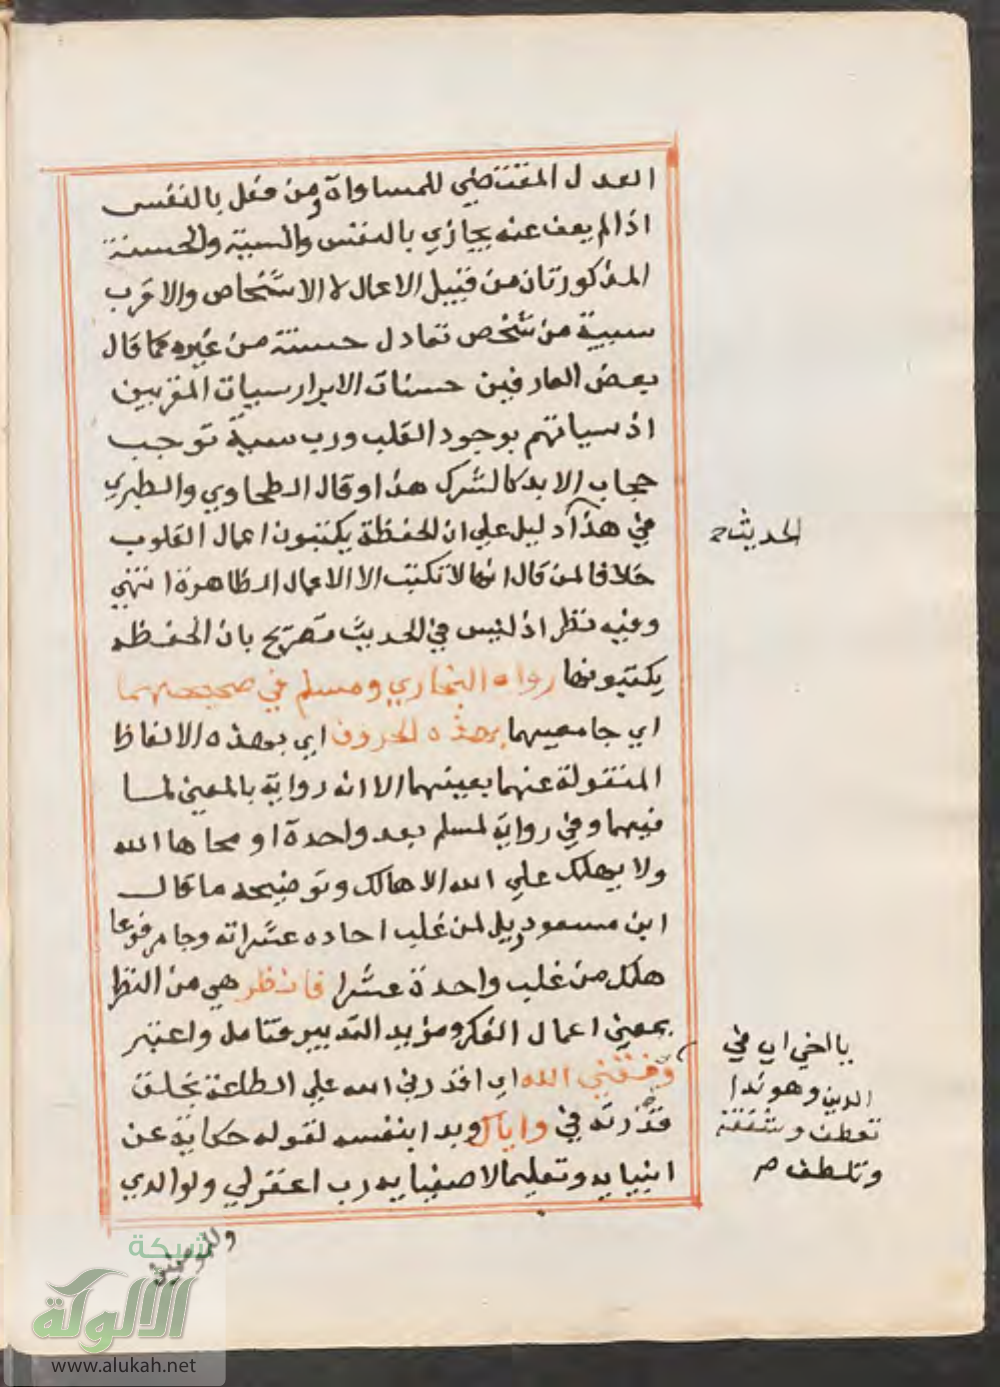 العدل المقتضي للمساواة ومن قتل بالنفس
اذا لم يعف عنه يجازي بالنفس والسيئة والحسنة
المذكورتان من قبيل الاعمال لا الاشخاص والاقرب
سيية من شخص تعادل حسنة من غيره كما قال
بعض العارفين حسنات الابرار سيات المقربين
اذ سياتهم بوجود القلب ورب سيية توجب
حجاب الابد كالشرك هذا وقال الطحاوي والطبري
في هذا دليل علي ان الحفظة يكتبون اعمال القلوب
خلافا لمن قال انها لا تكتب الا الاعمال الظاهرة انتهي
وفيه نظر اذ ليس في الحديث تصريح بان الحفظه
يكتبونها رواه البخاري ومسلم في صحيحهما
اي جامعيهما بهذه الحروف اي بهذه الالفاظ
المنقولة عنهما بعينهما الا انه رواية بالمعني لما
فيهما وفي رواية لمسلم بعد واحدة او محاها الله
ولا يهلك علي الله الا هالك وتوضيحه ما قال
ابن مسعود ويل لمن غلب احاده عشراته وجا مرفوعا
هلك من غلب واحدة عشرا فانظر هي من النظر
بمعني اعمال الفكر ومزيد التدبير فتامل واعتبر
وفقني الله اي اقدرني الله علي الطاعة بخلق
قدرته في واياك وبدا بنفسه لقوله حكاية عن
انبيايه وتعليما لاصفيايه رب اغفر لي ولوالدي
وللمومنين
الحديث
يا اخي اي في
الدين وهو ندا
تعطف وشفقة
وتلطف
شبكة
الألوكة
www.alukah.net